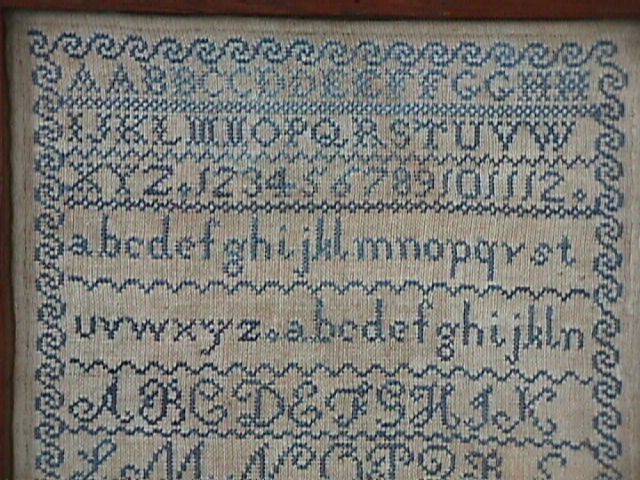 AABBCCDDEEFFGGHH
IJKLMNOPQRSTUVW
XYZ.123456789101112.
abcdefghijklmnopqrst
uvwxyz.abcdefghijkln
ABCDEFGHIK
LMNOPQRS